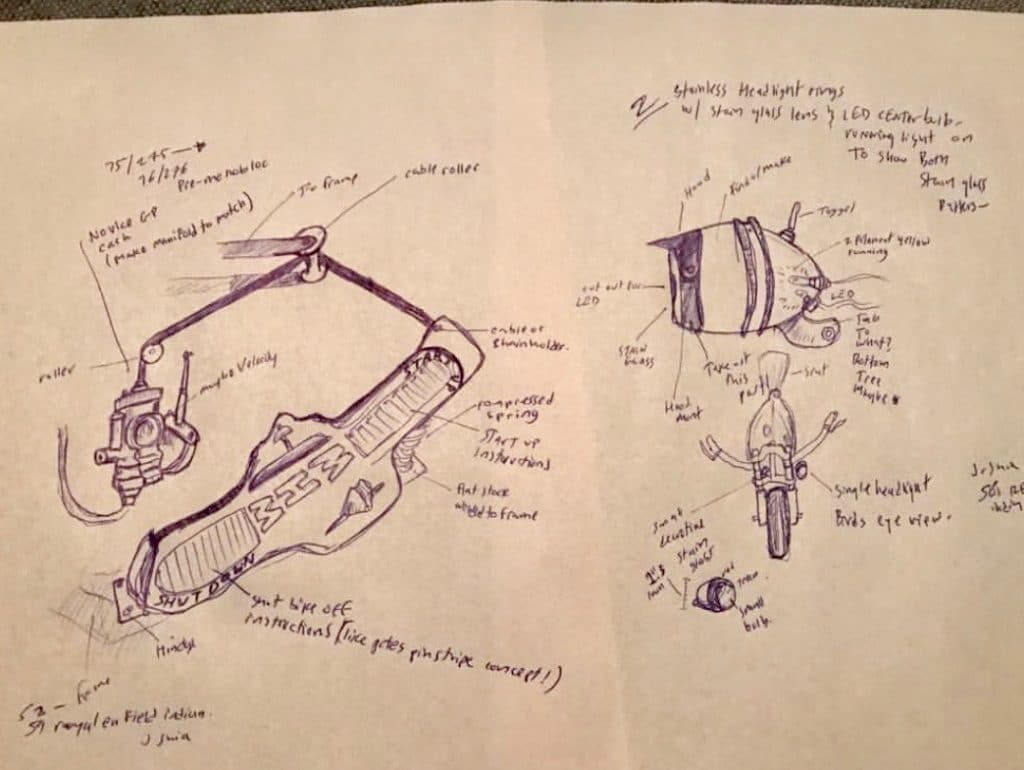 75/275
76/276
Pre-monobloc
Novice GP
carb
(make manifold to match)
To frame
cable roller
roller
maybe Velocity
cable or
chain holder.
START
compressed
spring
START up
instructions
flat stock
to frame
MIM
SHUT DOWN
shut bike off
instructions (like gates pinstripe concept!)
Hindge
52 - frame
59 royal enfield indian.
2 stainless Headlight rings
w/ stain glass lens & LED CENTER bulb-
running light on
To show Born
Stain glass
Hood
Toggel
2 filament yellow
running
cut out for
LED
LED
STAIN
GLASS
Take out
this
part
Head
mont
Tab
To
what?
Bottom
Tree
Maybe
seat
single headlight
Birds eye view.
stain
glass
small
bulb.